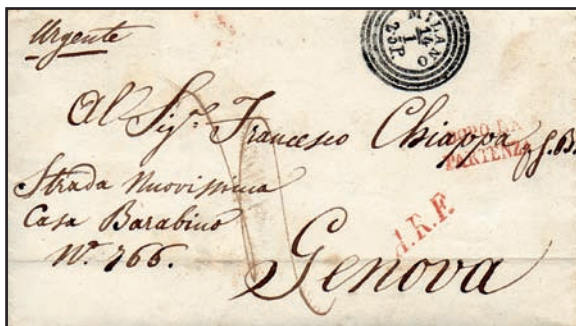 Urgente
MILANO
14
1
25P.
Al Sig.r Francesco Chiappa q. G.B.
DOPO LA
PARTENZA
Strada Nuovissima
Casa Barabino
N.º 766.
A.R.F.
Genova